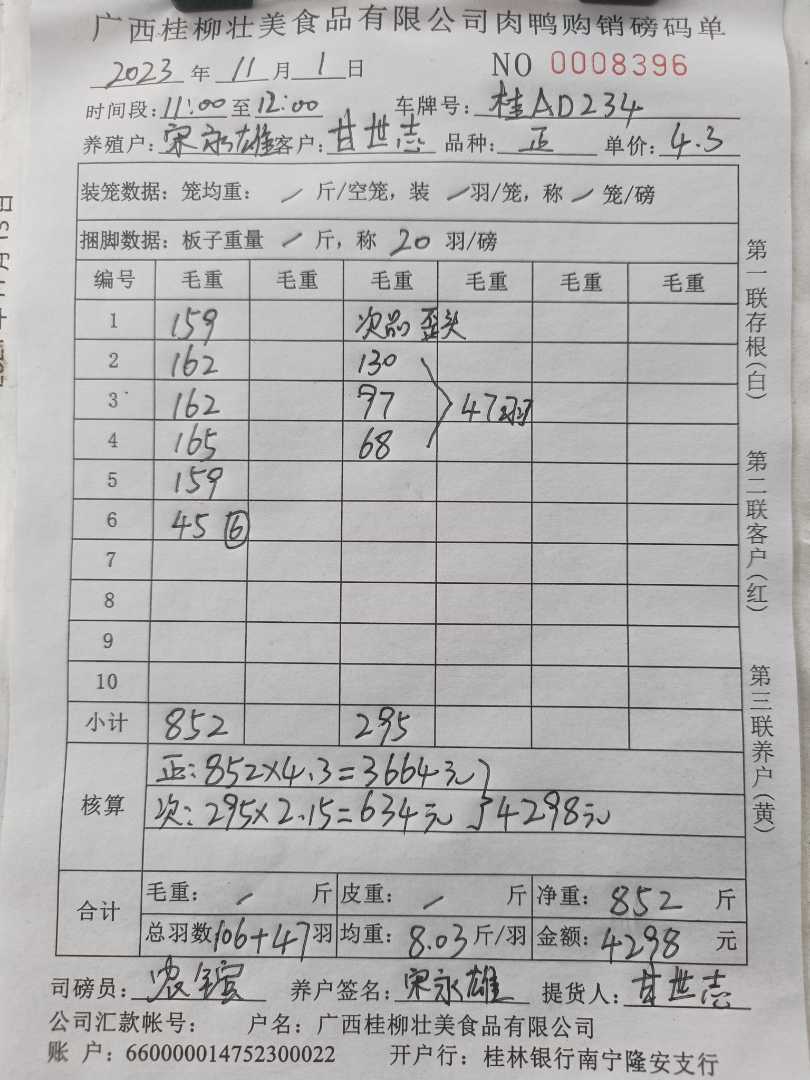 广西桂柳壮美食品有限公司肉鸭购销磅码单
2023 年 11 月 1 日 NO 0008396
时间段: 11:00 至 12:00 车牌号: 桂AD234
养殖户: 宋永雄 客户: 甘世志 品种: 正 单价: 4.3
装笼数据: 笼均重: / 斤/空笼, 装 / 羽/笼, 称 / 笼/磅
捆脚数据: 板子重量 / 斤, 称 20 羽/磅
编号 毛重 毛重 毛重 毛重 毛重 毛重
1 159 次品 歪头
2 162 130
3 162 97 47羽
4 165 68
5 159
6 45 6
7
8
9
10
小计 852 295
核算
正: 852×4.3=3664元
次: 295×2.15=634元 4298元
合计
毛重: / 斤 皮重: / 斤 净重: 852 斤
总羽数 106+47 羽 均重: 8.03 斤/羽 金额: 4298 元
司磅员: 养户签名: 宋永雄 提货人: 甘世志
公司汇款帐号: 户名: 广西桂柳壮美食品有限公司
账户: 660000014752300022 开户行: 桂林银行南宁隆安支行
第一联存根(白)
第二联客户(红)
第三联养户(黄)